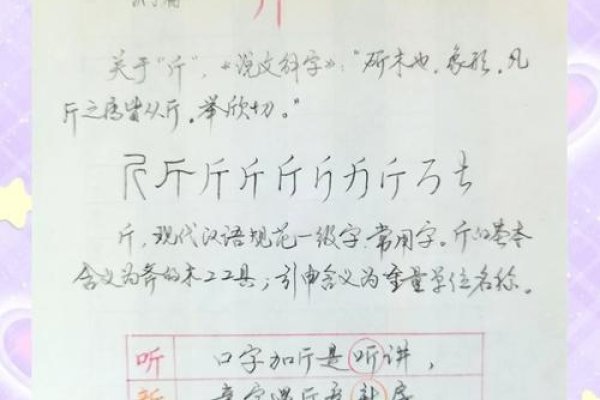 斤
关于“斤”，《说文解字》：“斫木也，象形，凡
斤之属皆从斤。举欣切。”
斤，现代汉语规范一级字、常用字。斤的基本
含义为斧的木工工具；引申含义为重量单位名称。
听 口字加斤是听讲，